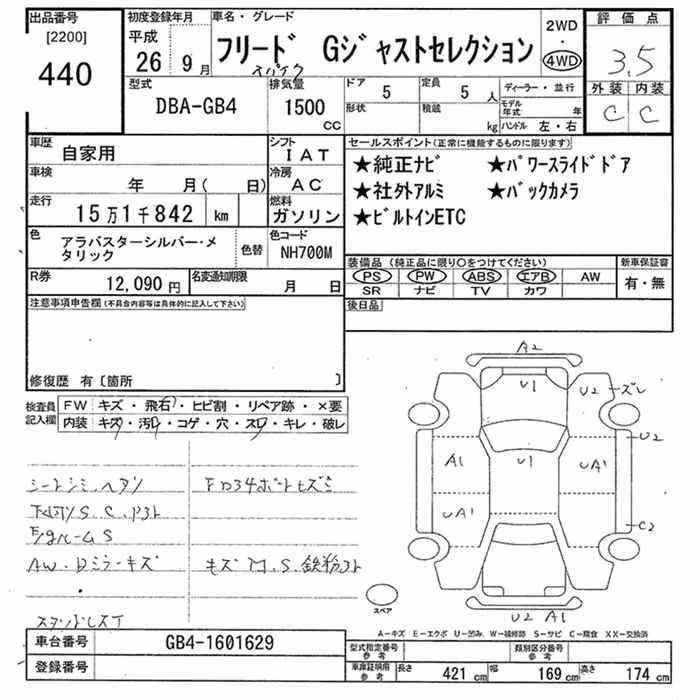 出品番号
[2200]
440
初度登録年月
平成
26 9月
車名・グレード
フリード Gジャストセレクション
スパイク
2WD
・
4WD
評価点
3.5
外装 内装
C C
型式
DBA-GB4
排気量
1500
CC
ドア
5
形状
定員
5 人
積載
kg
ディーラー・並行
モデル年式 年
ハンドル 左・右
車歴
自家用
シフト
IAT
車検
年 月( 日)
冷房
AC
走行
15万1千842 km
燃料
ガソリン
色
アラバスターシルバー・メ
タリック
色替
色コード
NH700M
R券
12,090 円
名変通知期限
月 日
セールスポイント(正常に機能するものに限ります)
★純正ナビ ★パワースライドドア
★社外アルミ ★バックカメラ
★ビルトインETC
装備品 (純正品に限り○をつけてください)
PS PW ABS エアB AW
SR ナビ TV カワ
新車保証書
有・無
後日品
注意事項申告欄(不具合内容等は具体的に記入して下さい)
修復歴 有〔箇所 〕
検査員
記入欄
FW キズ・飛石・ヒビ割・リペア跡・×要
内装 キズ・汚レ・コゲ・穴・スレ・キレ・破レ
シートシミ.ヘタリ
S.C.
ルームS
AW.Dミラーキズ
キズ M.S.鉄粉
A2
U1
U2
ズレ
U2
A1
U1
UA1
UA1
C2
U2 A1
スペア
A-キズ E-エクボ U-凹み W-補修跡 S-サビ C-腐食 XX-交換済
車台番号
GB4-1601629
登録番号
型式指定番号
参考
類別区分番号
参考
車庫証明用
参考
長さ 421 cm 幅 169 cm 高さ 174 cm